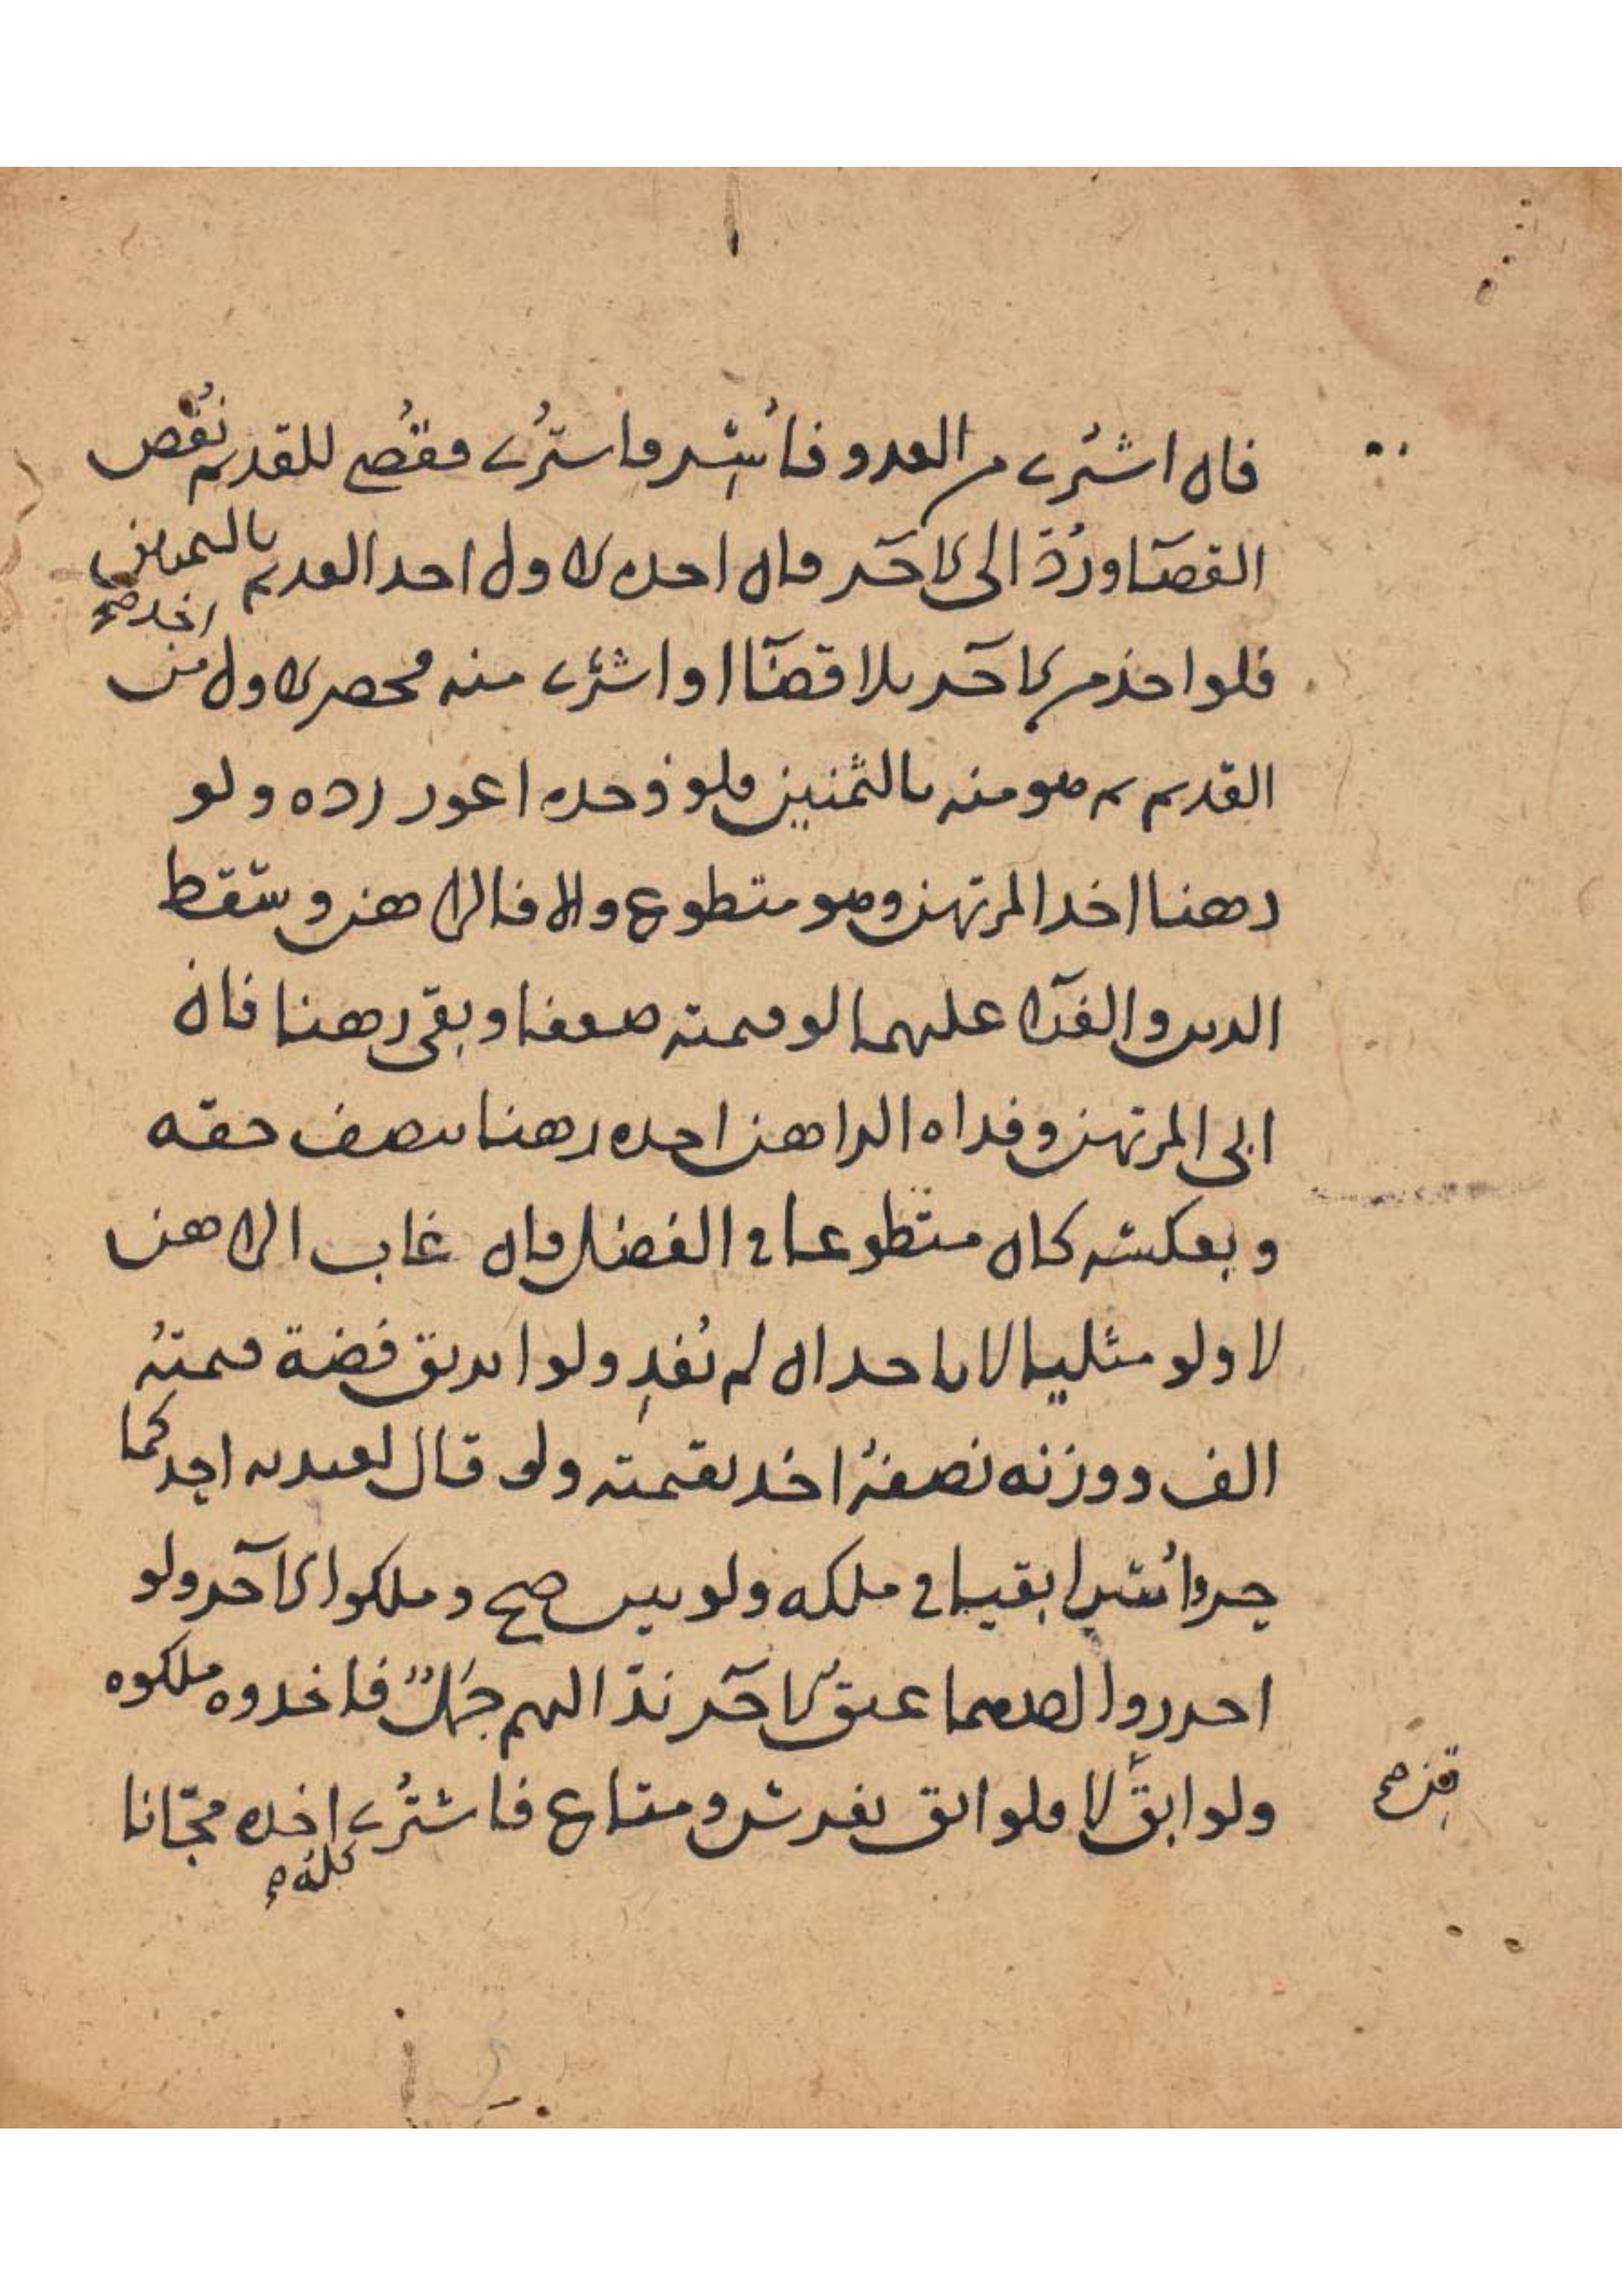 فان اشترى من العدو فأُسِر فاشتُرى فقُضى للقديم نُقض
القضآ ورُدّ الى الآخر فان اخذه الاول اخذ القديم بالثمنين
اخذ صح
فلو اخذ من الآخر بلا قضآ او اشترى منه فحضر الاول من
القديم هو منه بالثمنين فلو وجده اعور رده ولو
رهنا اخذ المرتهن وهو متطوع والا فالراهن وسقط
الدين والفدآ عليهما لو قيمته ضعفا وبقى رهنا فان
ابى المرتهن وفداه الراهن اخذه رهنا بنصف حقه
وبعكسه كان متطوعا فى الفضل وان غاب الراهن
لا ولو مثليا لا ياخذ ان لم يُفدِ ولو ابريق فضة قيمتهُ
الف ووزنه نصفهُ اخذ بقيمته ولو قال لعبديه احدكما
حر وأُسرا بقيا فى ملكه ولو بين صح وملكوا الآخر ولو
احرزوا احدهما عتق الآخر ندّ اليهم جملٌ فاخذوه ملكوه
ولو ابق لا فلو ابق بفرس ومتاع فاشتُرى اخذه مجّانا
قن صح
كله صح